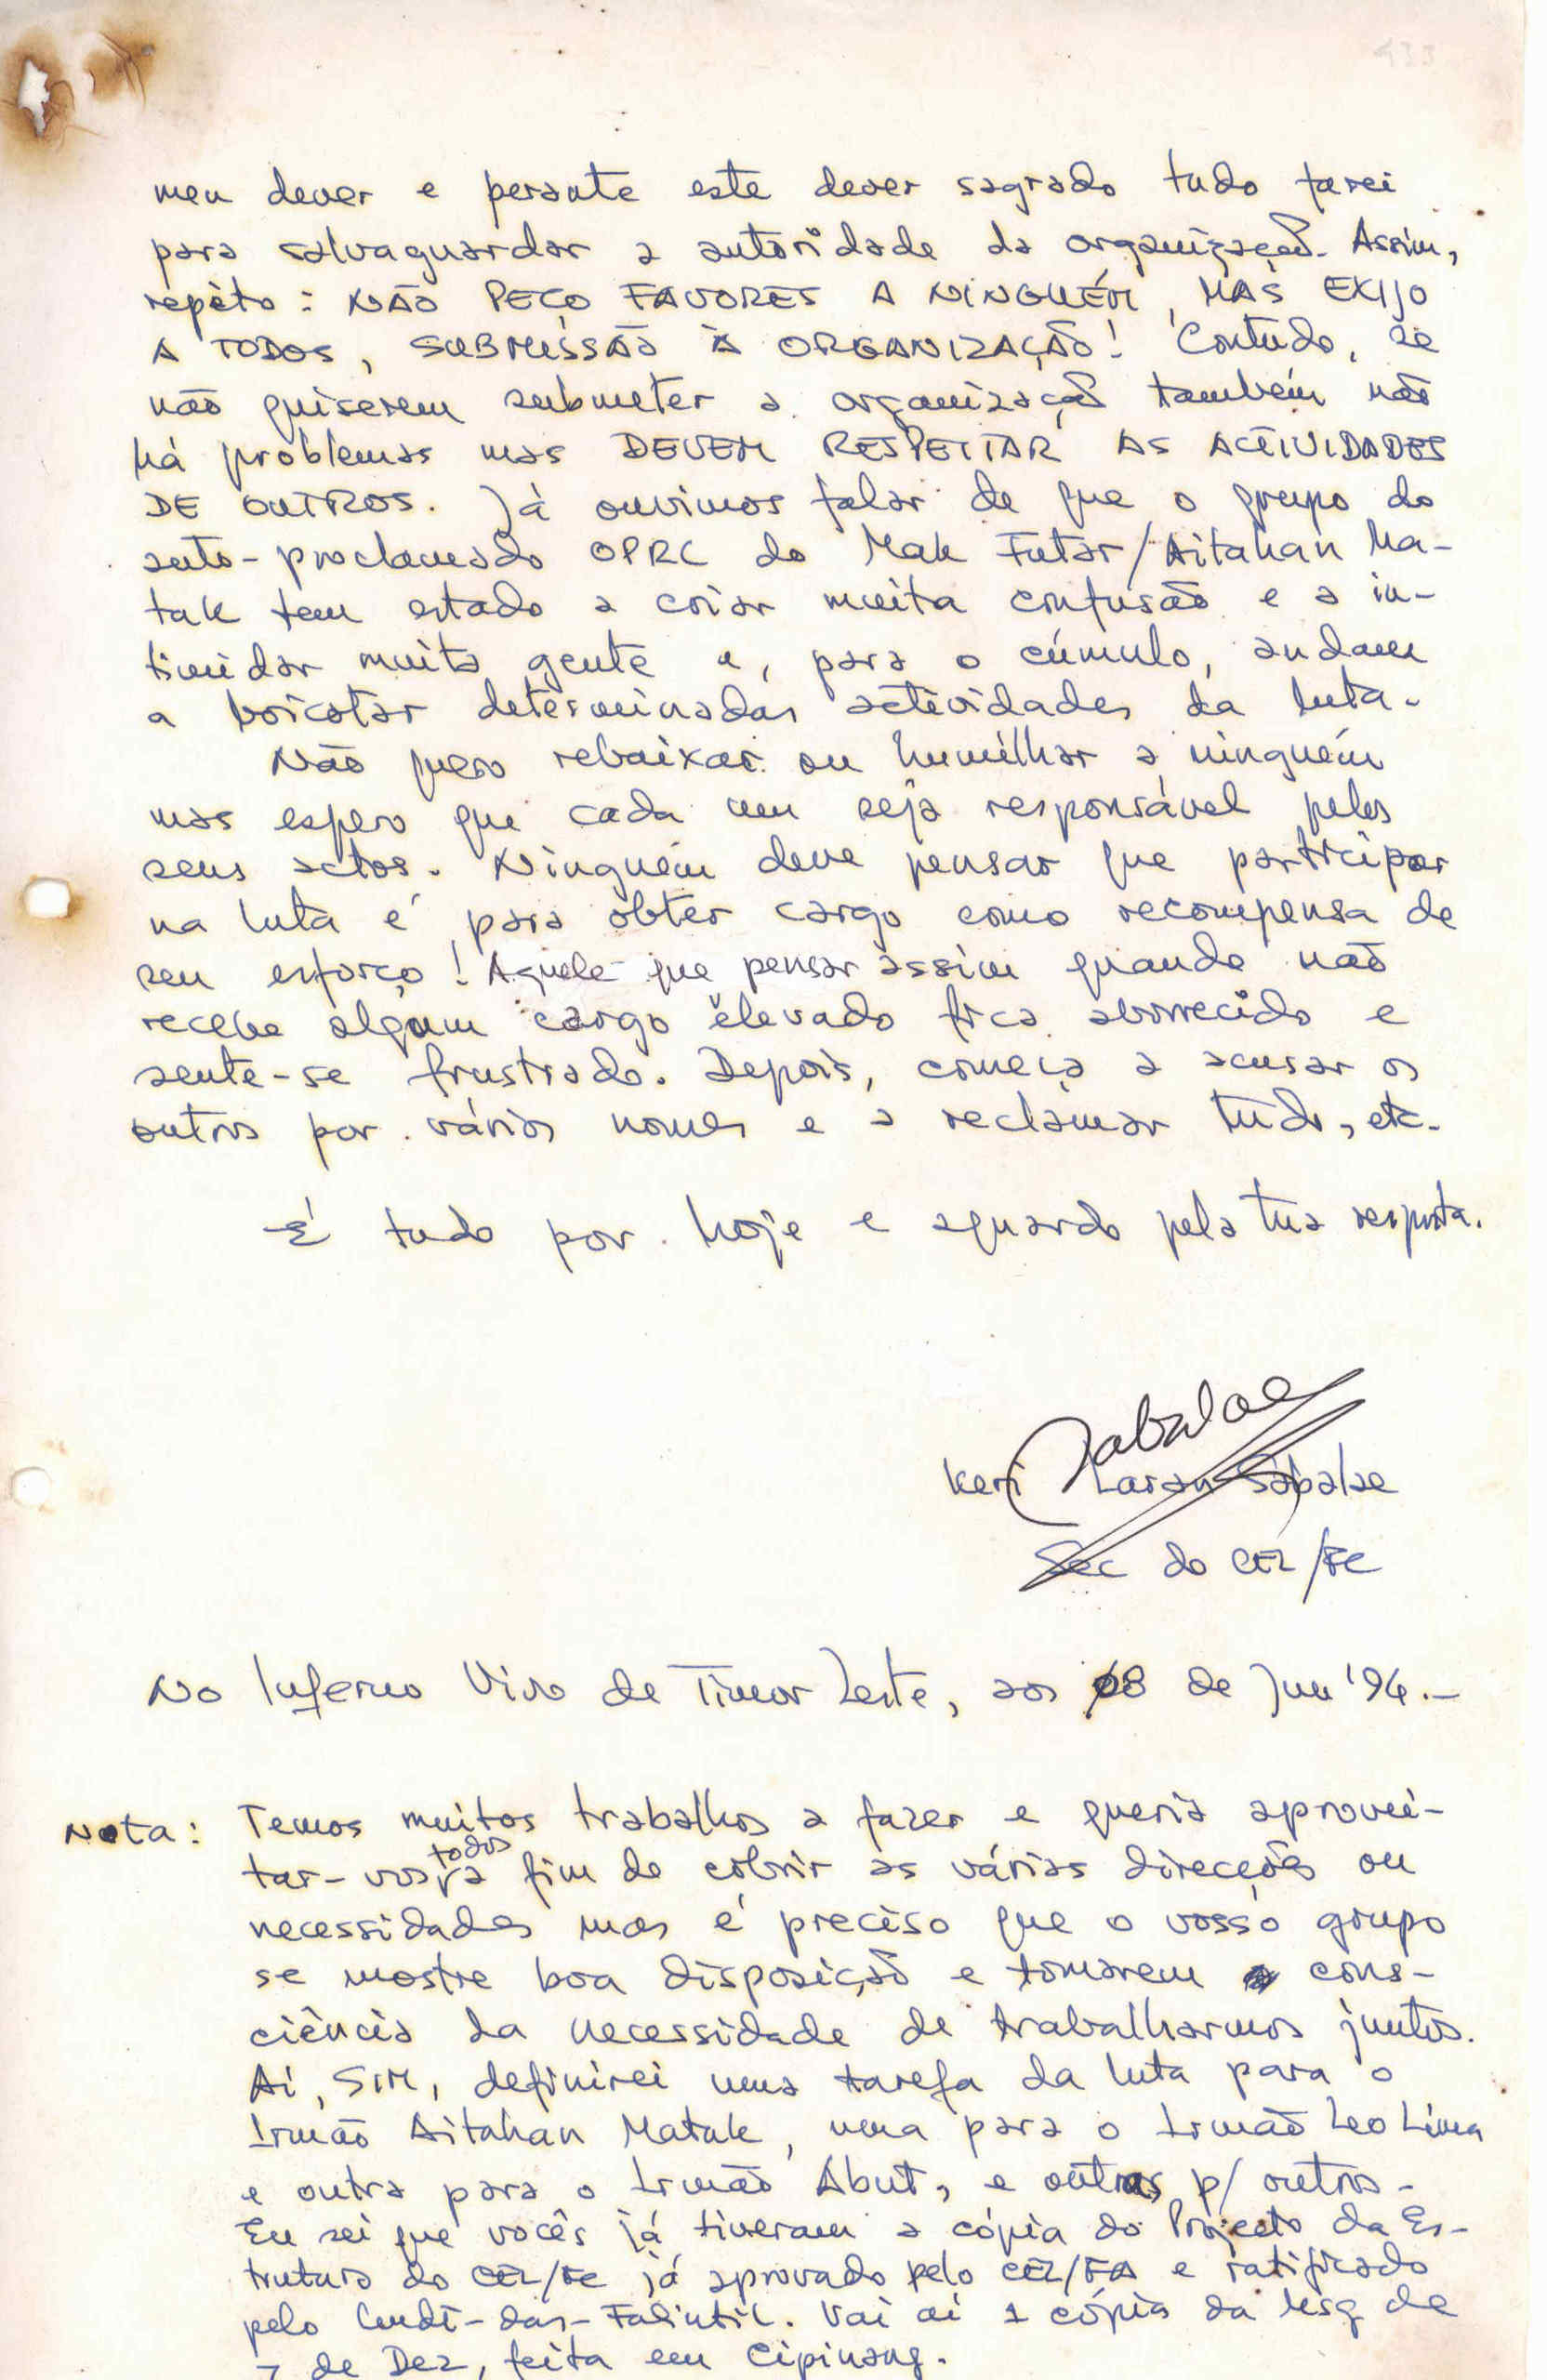 433
meu dever e perante este dever sagrado tudo farei
para salvaguardar a autoridade da organização. Assim,
repito: NÃO PEÇO FAVORES A NINGUÉM, MAS EXIJO
A TODOS, SUBMISSÃO À ORGANIZAÇÃO! Contudo, se
não quiserem submeter a organização também não
há problemas mas DEVEM RESPEITAR AS ACTIVIDADES
DE OUTROS. Já ouvimos falar de que o grupo do
auto-proclamado OPRC do Mak Futar/Aitahan Ma-
tak tem estado a criar muita confusão e a in-
timidar muita gente e, para o cúmulo, andam
a boicotar determinadas actividades da luta.
Não quero rebaixar ou humilhar a ninguém
mas espero que cada um seja responsável pelos
seus actos. Ninguém deve pensar que participar
na luta é para obter cargo como recompensa de
seu esforço! Aquele que pensar assim quando não
recebe algum cargo elevado fica aborrecido e
sente-se frustrado. Depois, começa a acusar os
outros por vários nomes e a reclamar tudo, etc.
É tudo por hoje e aguardo pela tua resposta.
Sabalae
Keri Laran Sabalae
Sec do CEL/FC
No Inferno Vivo de Timor Leste, aos 08 de Jun '94.-
Nota: Temos muitos trabalhos a fazer e queria aprovei-
todos
tar-vos a fim de cobrir as várias direcções ou
necessidades mas é preciso que o vosso grupo
se mostre boa disposição e tomarem cons-
ciência da necessidade de trabalharmos juntos.
Aí, SIM, definirei uma tarefa da luta para o
Irmão Aitahan Matak, uma para o Irmão Leo Lima
e outra para o Irmão Abut, e outras p/ outros.
Eu sei que vocês já tiveram a cópia do Projecto da Es-
trutura do CEL/FC já aprovado pelo CEL/FA e ratificado
pelo Cmdt-das-Falintil. Vai aí 1 cópia da Msg de
7 de Dez, feita em Cipinang.